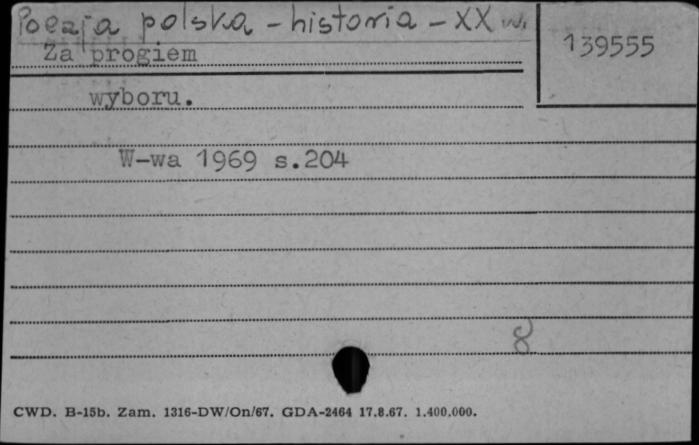 Poezja polska - historia - XX w.
139555
Za progiem
wyboru.
W-wa 1969 s.204
8
CWD. B-15b. Zam. 1316-DW/On/67. GDA-2464 17.8.67. 1.400.000.